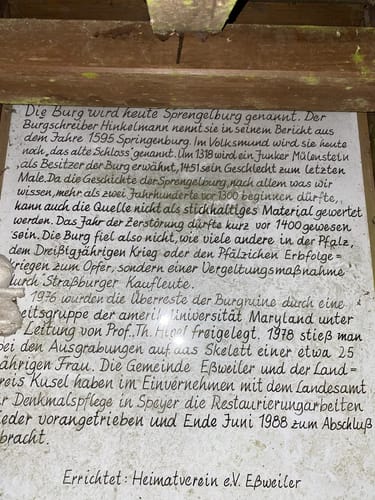 Die Burg wird heute Sprengelburg genannt. Der
Burgschreiber Hinkelmann nennt sie in seinem Bericht aus
dem Jahre 1595 Springenburg. Im Volksmund wird sie heute
noch „das alte Schloss" genannt. Um 1318 wird ein Junker Mülenstein
als Besitzer der Burg erwähnt, 1451 sein Geschlecht zum letzten
Male. Da die Geschichte der Sprengelburg, nach allem was wir
wissen, mehr als zwei Jahrhunderte vor 1300 beginnen dürfte,
kann auch die Quelle nicht als stichhaltiges Material gewertet
werden. Das Jahr der Zerstörung dürfte kurz vor 1400 gewesen
sein. Die Burg fiel also nicht, wie viele andere in der Pfalz,
dem Dreißigjährigen Krieg oder den Pfälzichen Erbfolge=
kriegen zum Opfer, sondern einer Vergeltungsmaßnahme
durch Straßburger Kaufleute.
1976 wurden die Überreste der Burgruine durch eine
eitsgruppe der amerik. Universität Maryland unter
Leitung von Prof. Th. Higel freigelegt. 1978 stieß man
bei den Ausgrabungen auf das Skelett einer etwa 25
jährigen Frau. Die Gemeinde Eßweiler und der Land=
kreis Kusel haben im Einvernehmen mit dem Landesamt
r Denkmalspflege in Speyer die Restaurierungarbeiten
ieder vorangetrieben und Ende Juni 1988 zum Abschluß
bracht.
Errichtet: Heimatverein e.V. Eßweiler